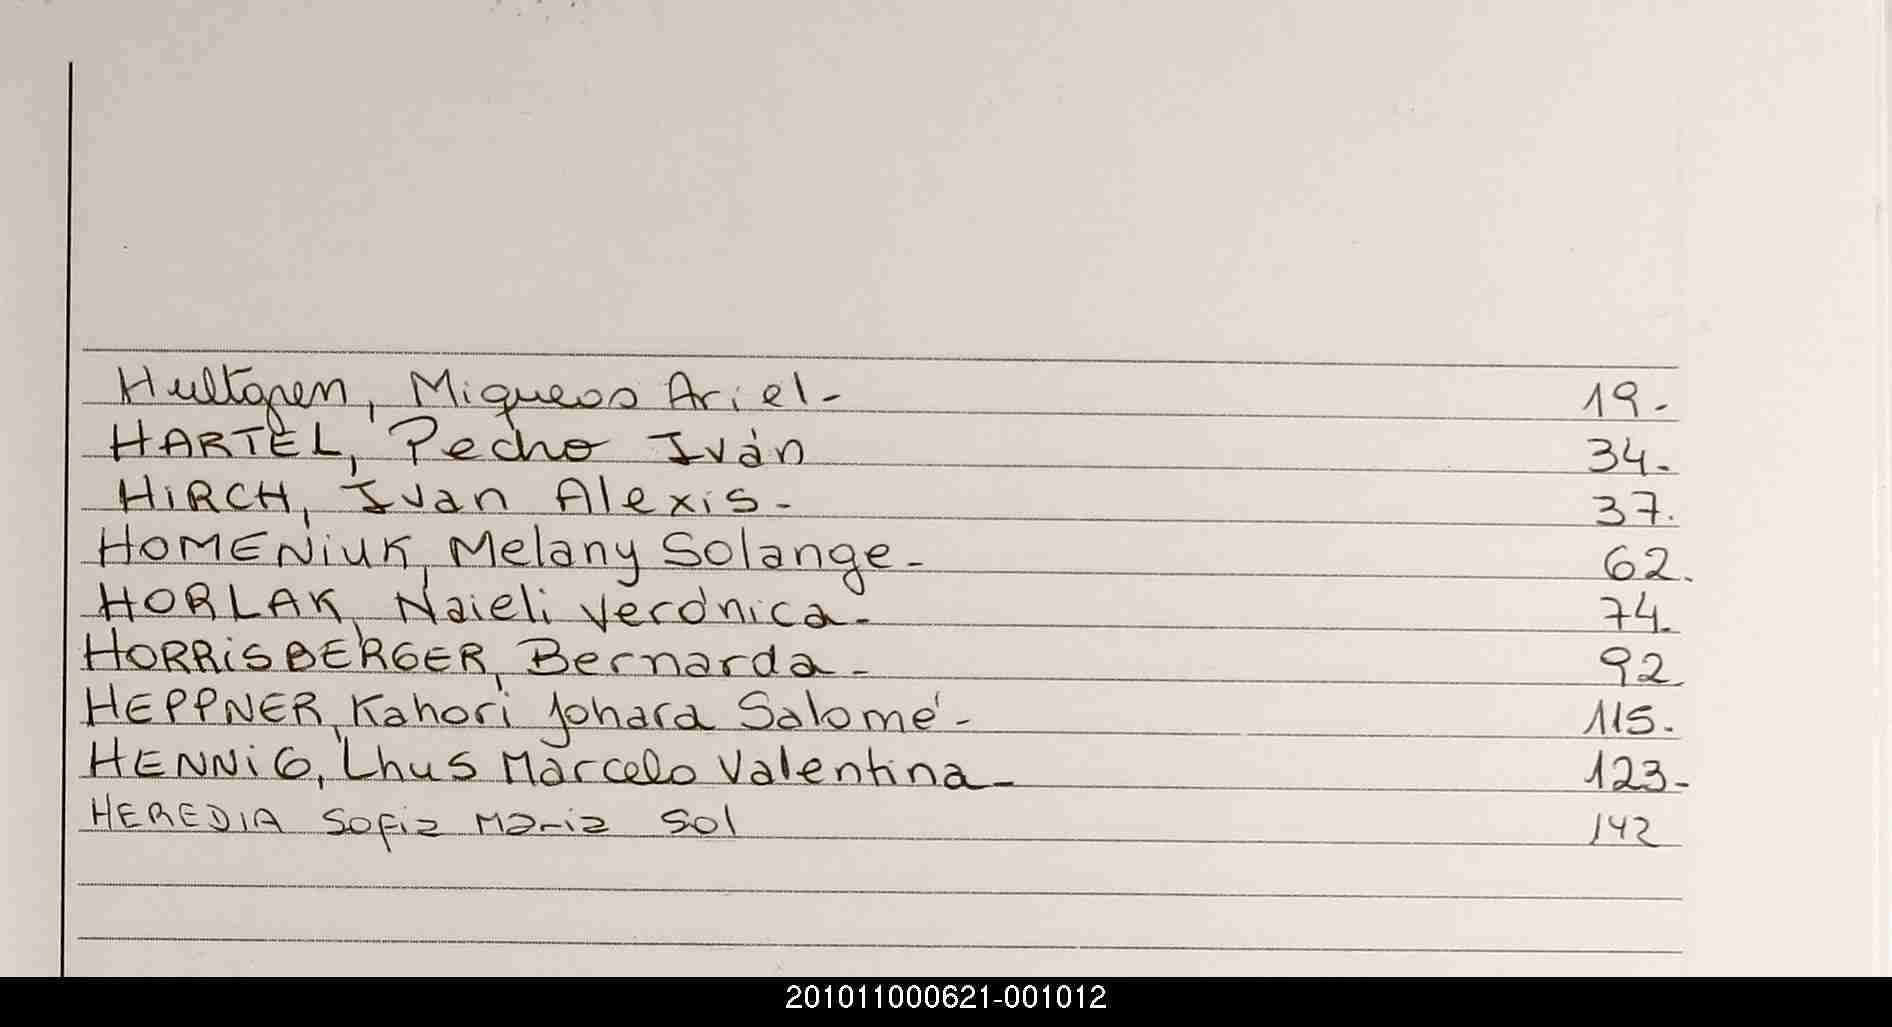 Hultgren, Miqueas Ariel- 19-
HARTEL, Pedro Iván 34-
HiRCH, Ivan Alexis- 37.
HOMENiUK, Melany Solange- 62.
HORLAK, Naieli Verónica- 74.
HORRiSBERGER, Bernarda- 92
HEPPNER, Kahori Johara Salomé- 115-
HENNiG, Lhus Marcelo Valentina- 123-
HEREDIA Sofia Maria Sol 142
201011000621-001012